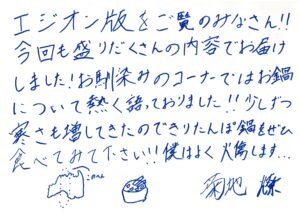 エジオン版をご覧のみなさん!!
今回も盛りだくさんの内容でお届け
しました!お馴染みのコーナーではお鍋
について熱く語っておりました!!少しずつ
寒さも増してきたのできりたんぽ鍋をぜひ
食べてみて下さい!!僕はよく火傷します…
菊地 燎